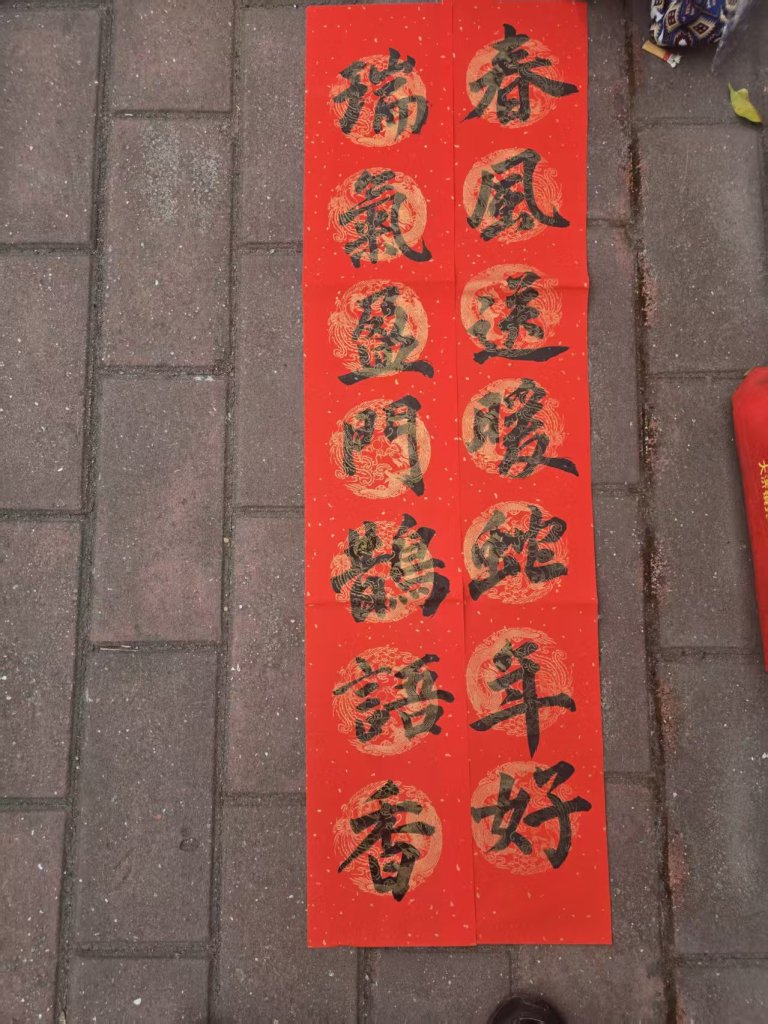 春風送暖蛇年好
瑞氣盈門鵲語香